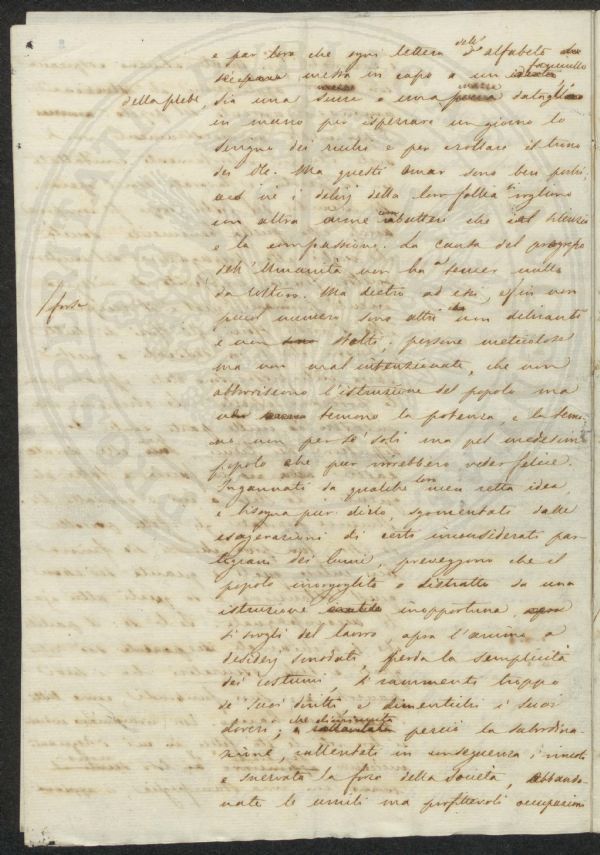 e par loro che ogni lettera dell' alfabeto
messa in capo a un fanciullo
della plebe, sia una scure o una
in mano per ispezzare un giorno lo
scrigno dei ricchi e per crollare il trono
dei Re. Ma questi omai sono ben pochi,
ed i delirj della loro follia si vogliono
con altra arme combattere che col silenzio
e la compassione. La causa del progresso
dell' Umanità non ha a temer nulla
da costoro. Ma dietro ad essi, e forse in non
piccol numero sono altri che non deliranti
e non stolti; persone meticolose
ma non mal intenzionate, che non
abborriscono l'istruzione del popolo ma
temono la potenza, e la temo-
no non per sè soli ma pel medesimo
popolo che pur vorrebbero veder felice.
Ingannati da qualche loro men retta idea,
e bisogna pur dirlo, sgomentati dalle
esagerazioni di certi inconsiderati par-
tigiani dei lumi, preveggono che il
popolo inorgoglito o distratto da una
istruzione inopportuna
si svogli del lavoro, apra l'animo a
desiderj smodati, perda la semplicità
dei costumi, si rammenti troppo
de' suoi diritti e dimentichi i suoi
doveri; che diminuita perciò la subordina-
zione, rallentati in conseguenza i vincoli
e snervata la forza della Società, abbando-
nate le umili ma profittevoli occupazioni